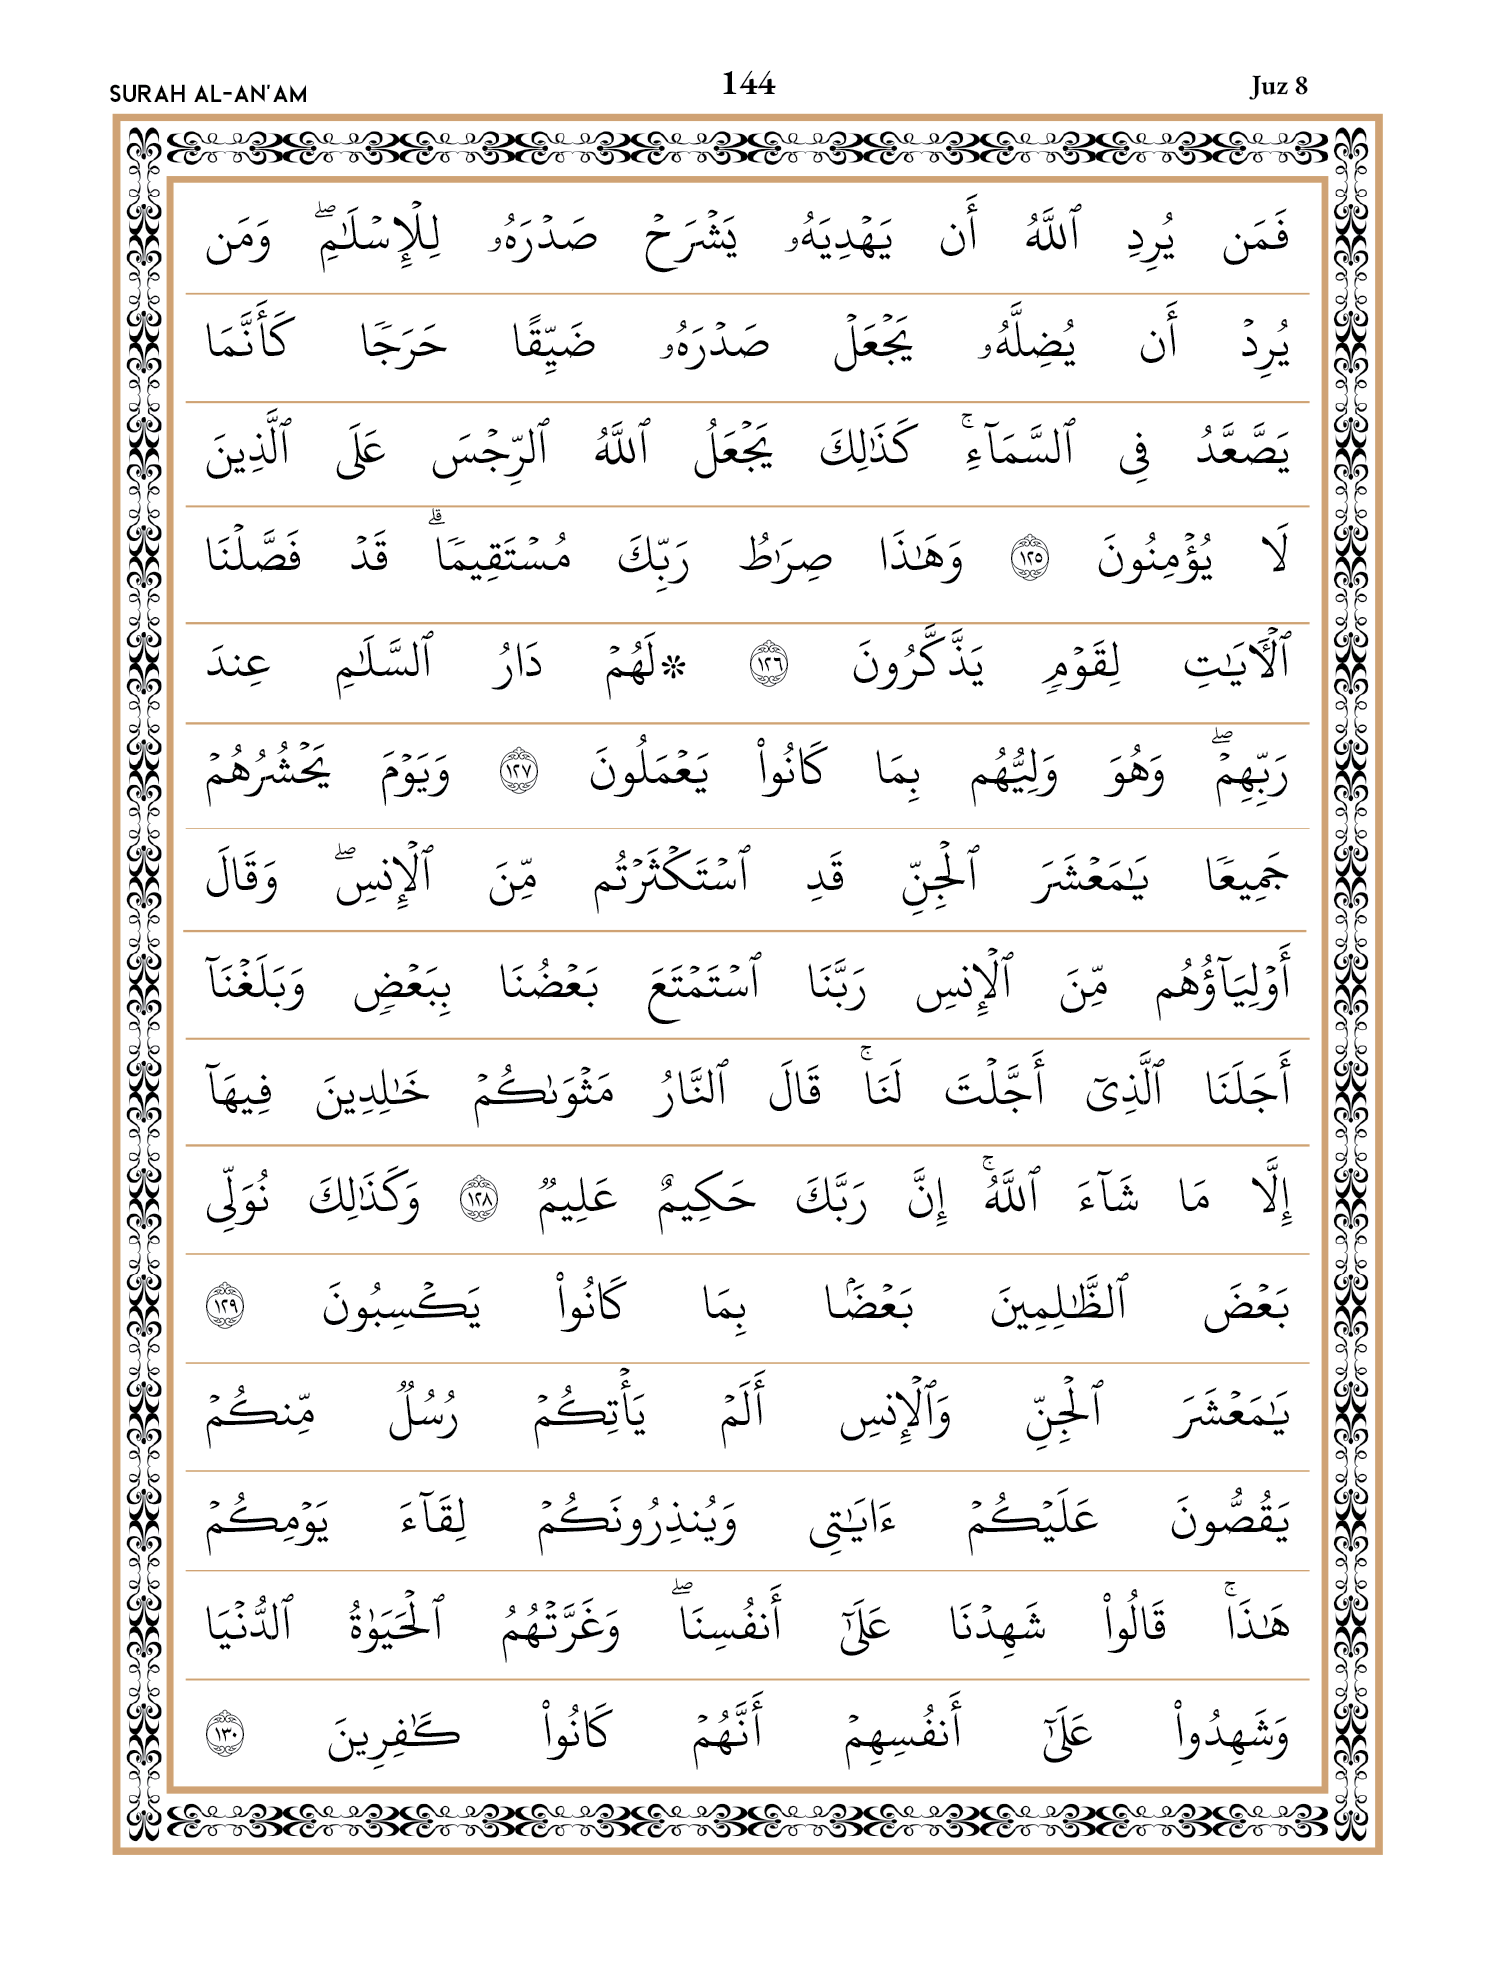 SURAH AL-AN'AM 144 Juz 8
فَمَن يُرِدِ ٱللَّهُ أَن يَهۡدِيَهُۥ يَشۡرَحۡ صَدۡرَهُۥ لِلۡإِسۡلَٰمِۖ وَمَن
يُرِدۡ أَن يُضِلَّهُۥ يَجۡعَلۡ صَدۡرَهُۥ ضَيِّقًا حَرَجٗا كَأَنَّمَا
يَصَّعَّدُ فِي ٱلسَّمَآءِۚ كَذَٰلِكَ يَجۡعَلُ ٱللَّهُ ٱلرِّجۡسَ عَلَى ٱلَّذِينَ
لَا يُؤۡمِنُونَ ١٢٥ وَهَٰذَا صِرَٰطُ رَبِّكَ مُسۡتَقِيمٗاۗ قَدۡ فَصَّلۡنَا
ٱلۡأٓيَٰتِ لِقَوۡمٖ يَذَّكَّرُونَ ١٢٦ ۞لَهُمۡ دَارُ ٱلسَّلَٰمِ عِندَ
رَبِّهِمۡۖ وَهُوَ وَلِيُّهُم بِمَا كَانُواْ يَعۡمَلُونَ ١٢٧ وَيَوۡمَ يَحۡشُرُهُمۡ
جَمِيعٗا يَٰمَعۡشَرَ ٱلۡجِنِّ قَدِ ٱسۡتَكۡثَرۡتُم مِّنَ ٱلۡإِنسِۖ وَقَالَ
أَوۡلِيَآؤُهُم مِّنَ ٱلۡإِنسِ رَبَّنَا ٱسۡتَمۡتَعَ بَعۡضُنَا بِبَعۡضٖ وَبَلَغۡنَآ
أَجَلَنَا ٱلَّذِيٓ أَجَّلۡتَ لَنَاۚ قَالَ ٱلنَّارُ مَثۡوَىٰكُمۡ خَٰلِدِينَ فِيهَآ
إِلَّا مَا شَآءَ ٱللَّهُۚ إِنَّ رَبَّكَ حَكِيمٌ عَلِيمٞ ١٢٨ وَكَذَٰلِكَ نُوَلِّي
بَعۡضَ ٱلظَّٰلِمِينَ بَعۡضَۢا بِمَا كَانُواْ يَكۡسِبُونَ ١٢٩
يَٰمَعۡشَرَ ٱلۡجِنِّ وَٱلۡإِنسِ أَلَمۡ يَأۡتِكُمۡ رُسُلٞ مِّنكُمۡ
يَقُصُّونَ عَلَيۡكُمۡ ءَايَٰتِي وَيُنذِرُونَكُمۡ لِقَآءَ يَوۡمِكُمۡ
هَٰذَاۚ قَالُواْ شَهِدۡنَا عَلَىٰٓ أَنفُسِنَاۖ وَغَرَّتۡهُمُ ٱلۡحَيَوٰةُ ٱلدُّنۡيَا
وَشَهِدُواْ عَلَىٰٓ أَنفُسِهِمۡ أَنَّهُمۡ كَانُواْ كَٰفِرِينَ ١٣٠